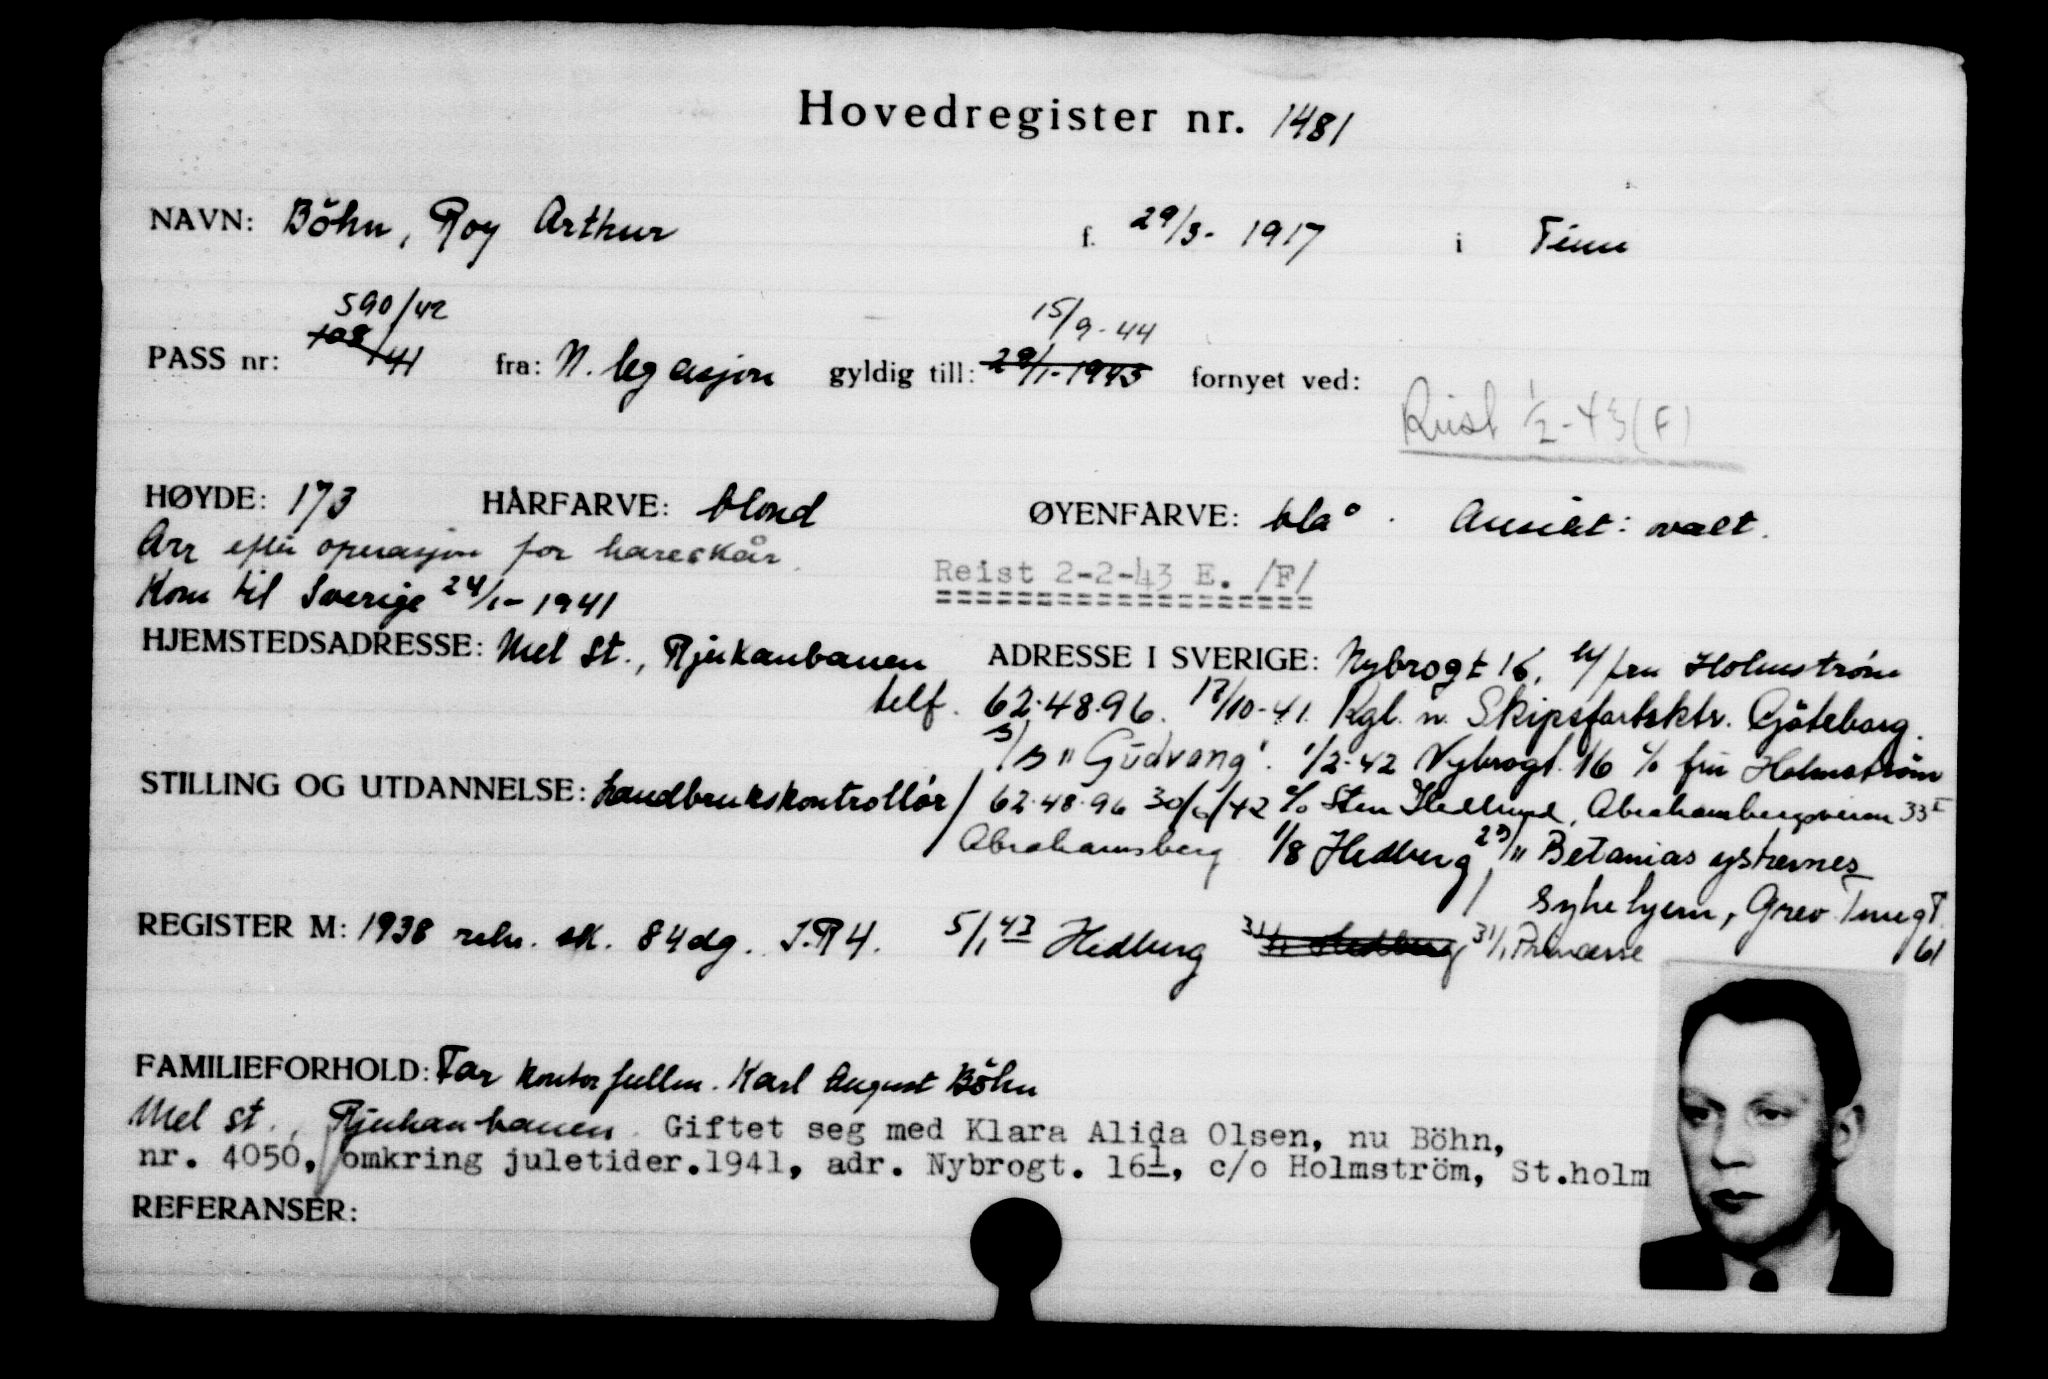 Hovedregister nr. 1481
NAVN: Böhn, Roy Arthur f. 29/3- 1917 i Tinn
590/42 15/9-44
PASS nr: 108/41 fra: N. legasjon gyldig till: 29/1-1943 fornyet ved:
Reist 1/2-43 (F)
HØYDE: 173 HÅRFARVE: blond ØYENFARVE: blå. Ansikt: ovalt.
Arr efter operasjon for hareskår.
Reist 2-2-43 E. /F/
Kom til Sverige 24/1-1941
HJEMSTEDSADRESSE: Mel st., Rjukanbanen ADRESSE I SVERIGE: Nybrogt 16, c/o fru Holmstrøm
telf. 62.48.96. 13/10-41. Rgl. n. Skipsfartsktr. Göteborg.
"Gudvang". 1/2-42 Nybrogt. 16 c/o fru Holmstrøm
STILLING OG UTDANNELSE: Landbrukskontrollör / 62.48.96 30/6/42 c/o Sten Hedlund, Abrahambergsveien 33 I
Abrahamsberg 1/8 Hedberg, 23/11 Betanias systrernes
sykehjem, Grev Turegt
REGISTER M: 1938 rekr. sk. 84 dg. I.R 4. 5/1 43 Hedberg 31/1 Hedberg 31/1 Princesse 61
FAMILIEFORHOLD: Far kontorfullm. Karl August Böhn
Mel st., Rjukanbanen. Giftet seg med Klara Alida Olsen, nu Böhn,
nr. 4050, omkring juletider.1941, adr. Nybrogt. 16 1, c/o Holmström, St.holm
REFERANSER: